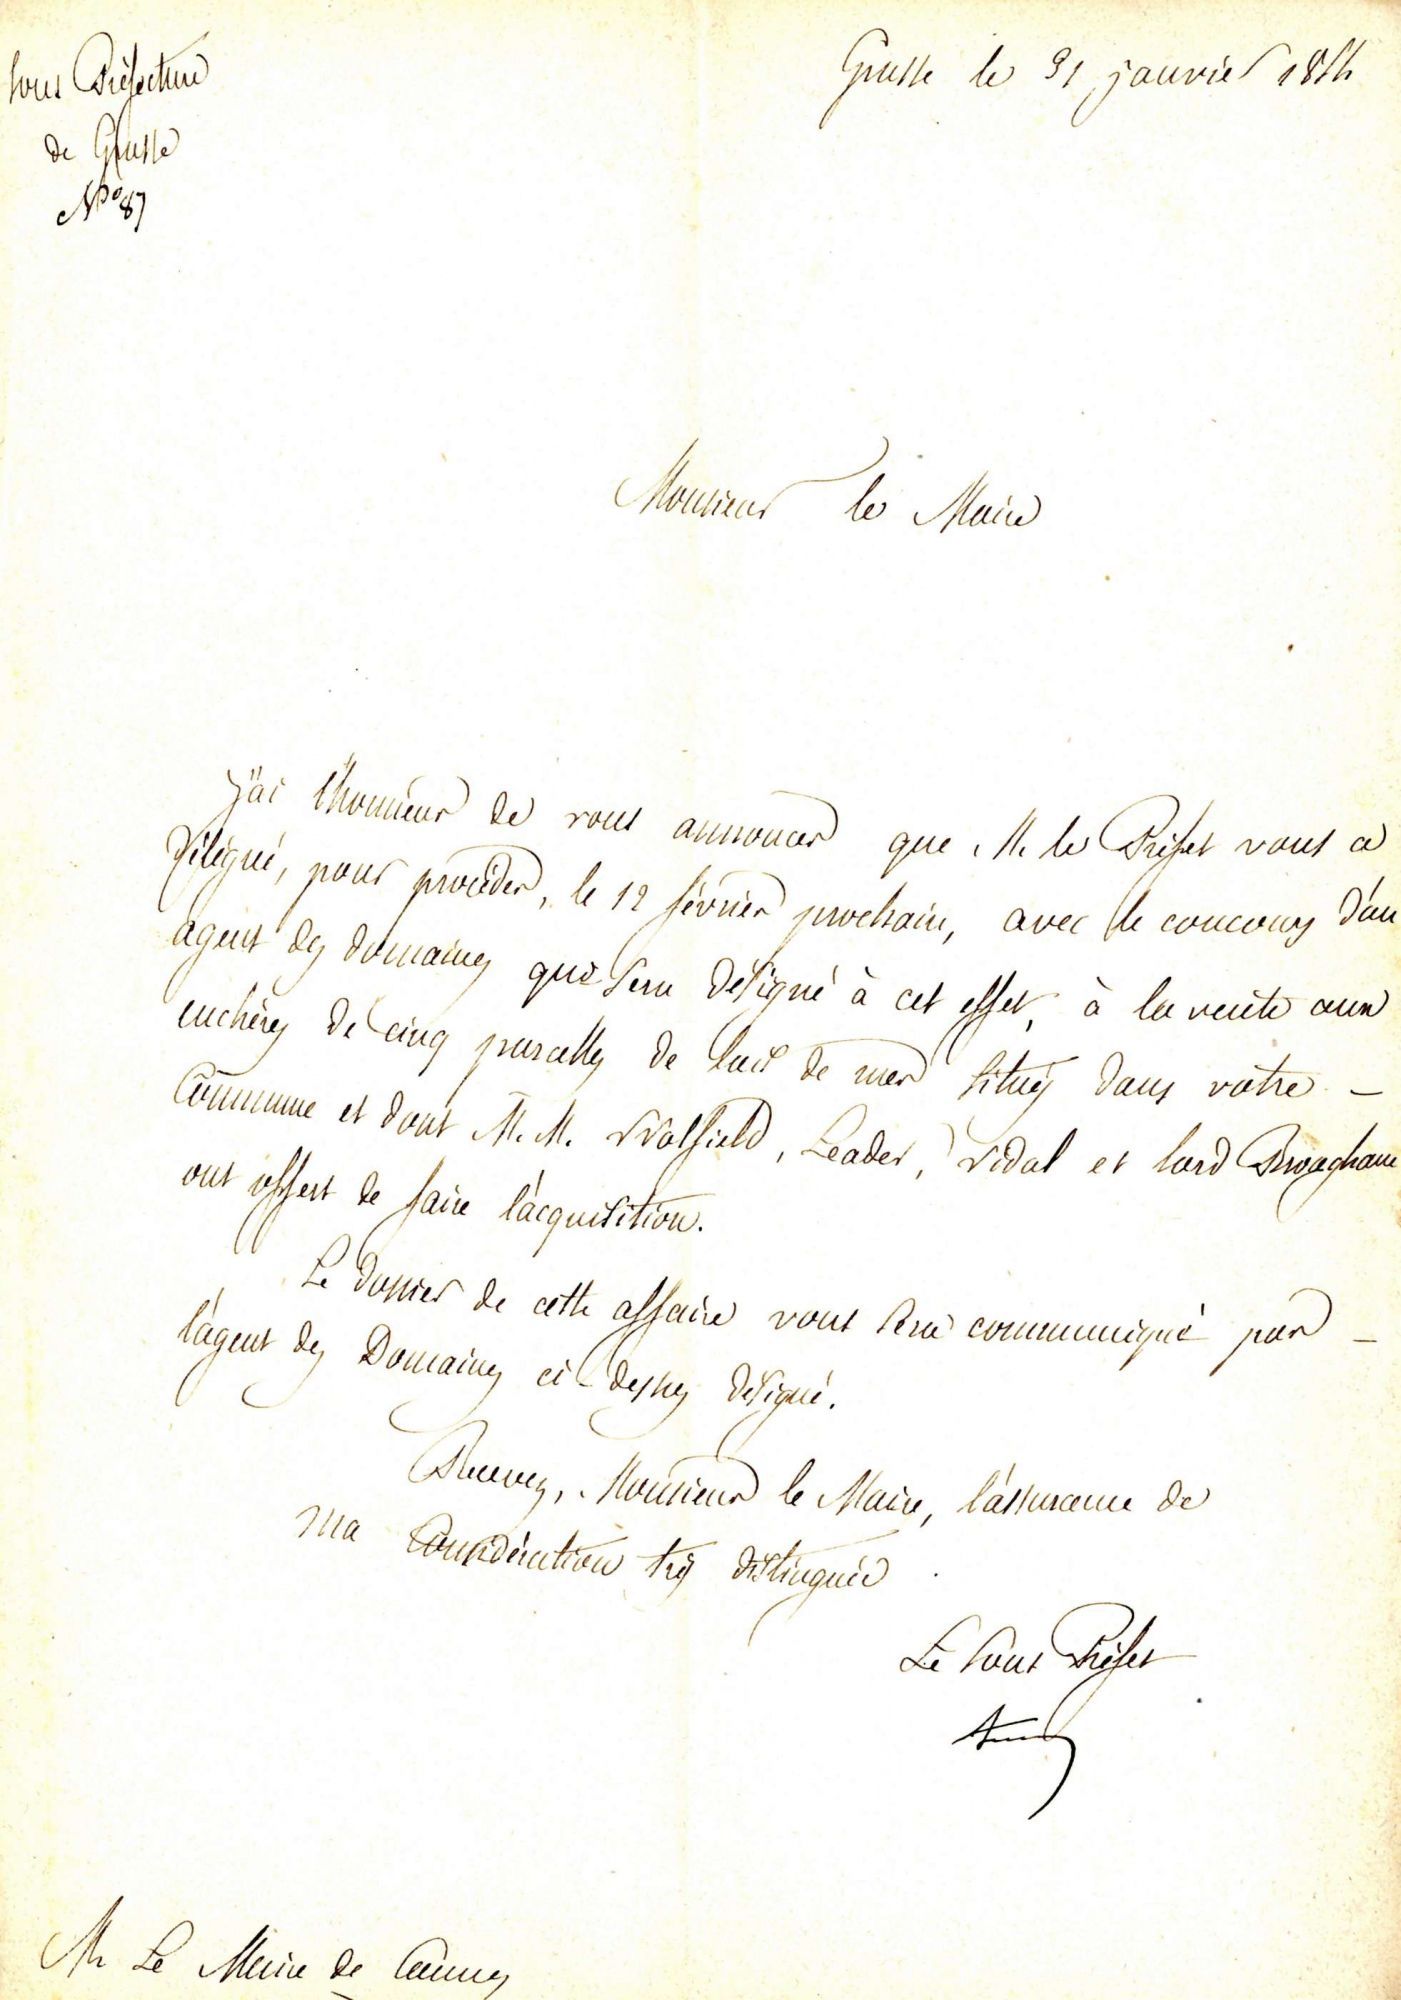 Sous Préfecture
de Grasse
N° 87
Grasse le 31 janvier 1854
Monsieur le Maire
J'ai l'honneur de vous annoncer que M. le Préfet vous a
délégué, pour procéder, le 12 février prochain, avec le concours d'un
agent des domaines qui sera désigné à cet effet, à la vente aux
enchères de cinq parcelles de lais de mer situés dans votre -
Commune et dont M. M. Wolfield, Leader, Vidal et lord Brougham
ont offert de faire l'acquisition.
Le dossier de cette affaire vous sera communiqué par -
l'agent des Domaines ci-dessus désigné.
Recevez, Monsieur le Maire, l'assurance de
ma Considération très distinguée.
Le Sous Préfet
Mr Le Maire de Cannes